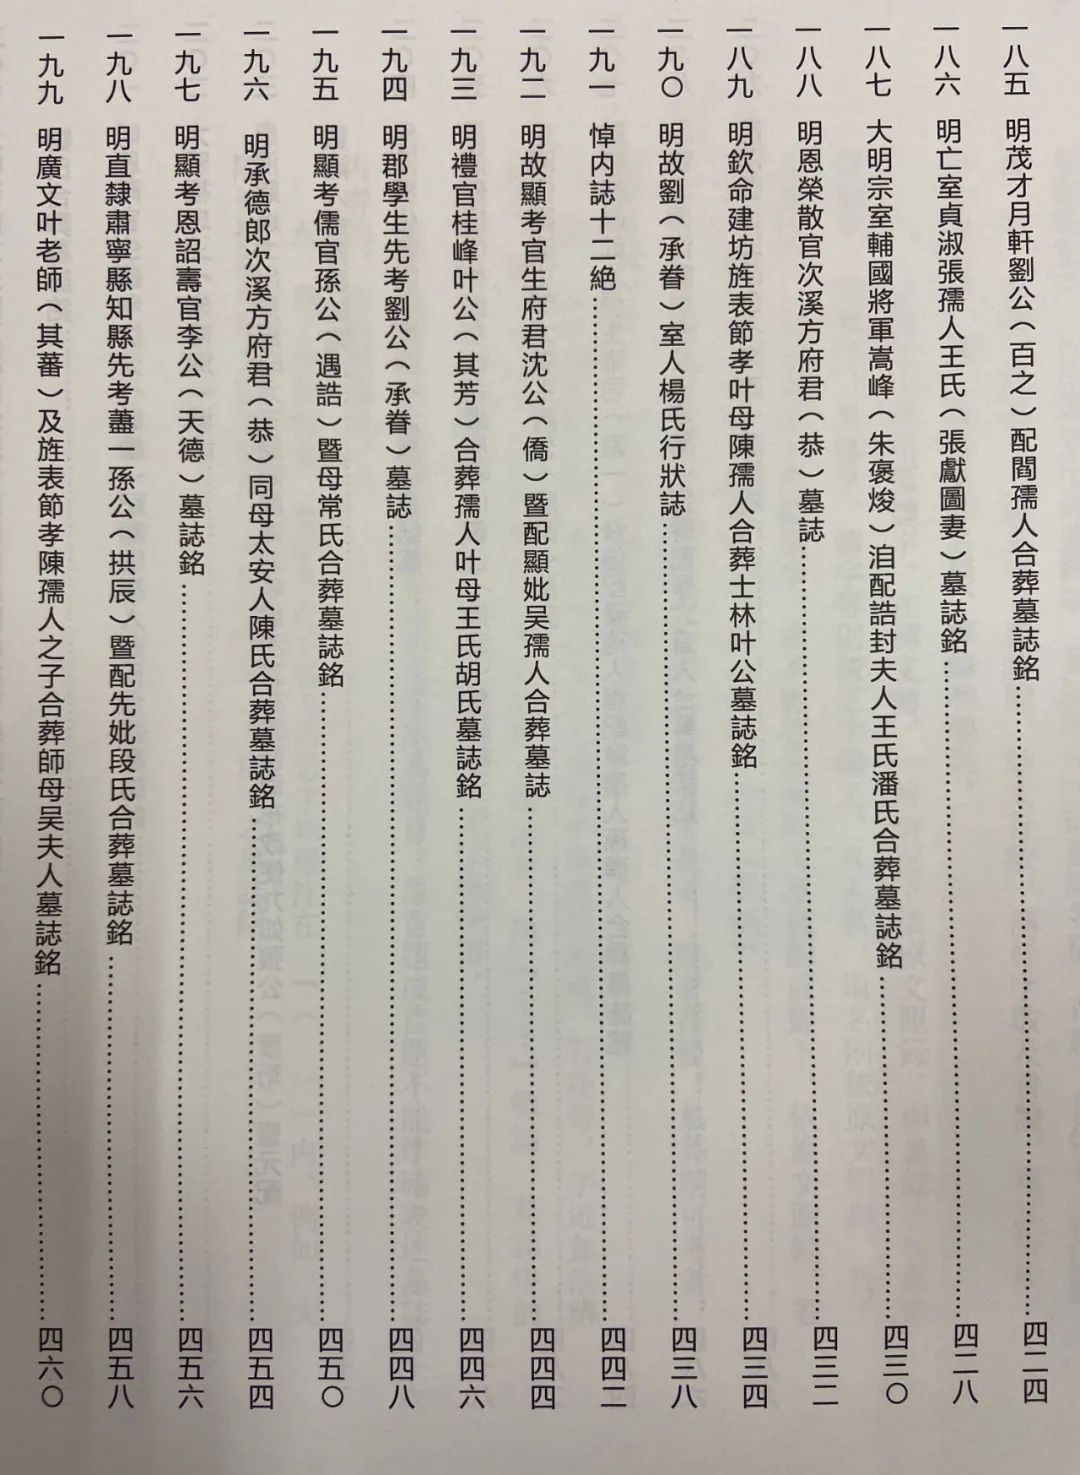 一八五　明茂才月軒劉公（百之）配閻孺人合葬墓誌銘……四二四
一八六　明亡室貞淑張孺人王氏（張獻圖妻）墓誌銘……四二八
一八七　大明宗室輔國將軍嵩峰（朱褒焌）洎配誥封夫人王氏潘氏合葬墓誌銘……四三〇
一八八　明恩榮散官次溪方府君（恭）墓誌……四三二
一八九　明欽命建坊旌表節孝叶母陳孺人合葬士林叶公墓誌銘……四三四
一九〇　明故劉（承眷）室人楊氏行狀誌……四三八
一九一　悼内誌十二絶……四四二
一九二　明故顯考官生府君沈公（僑）暨配顯妣吴孺人合葬墓誌……四四四
一九三　明禮官桂峰叶公（其芳）合葬孺人叶母王氏胡氏墓誌銘……四四六
一九四　明郡學生先考劉公（承眷）墓誌……四四八
一九五　明顯考儒官孫公（遇誥）暨母常氏合葬墓誌銘……四五〇
一九六　明承德郎次溪方府君（恭）同母太安人陳氏合葬墓誌銘……四五四
一九七　明顯考恩詔壽官李公（天德）墓誌銘……四五六
一九八　明直隸肅寧縣知縣先考藎一孫公（拱辰）暨配先妣段氏合葬墓誌銘……四五八
一九九　明廣文叶老師（其蕃）及旌表節孝陳孺人之子合葬師母吴夫人墓誌銘……四六〇